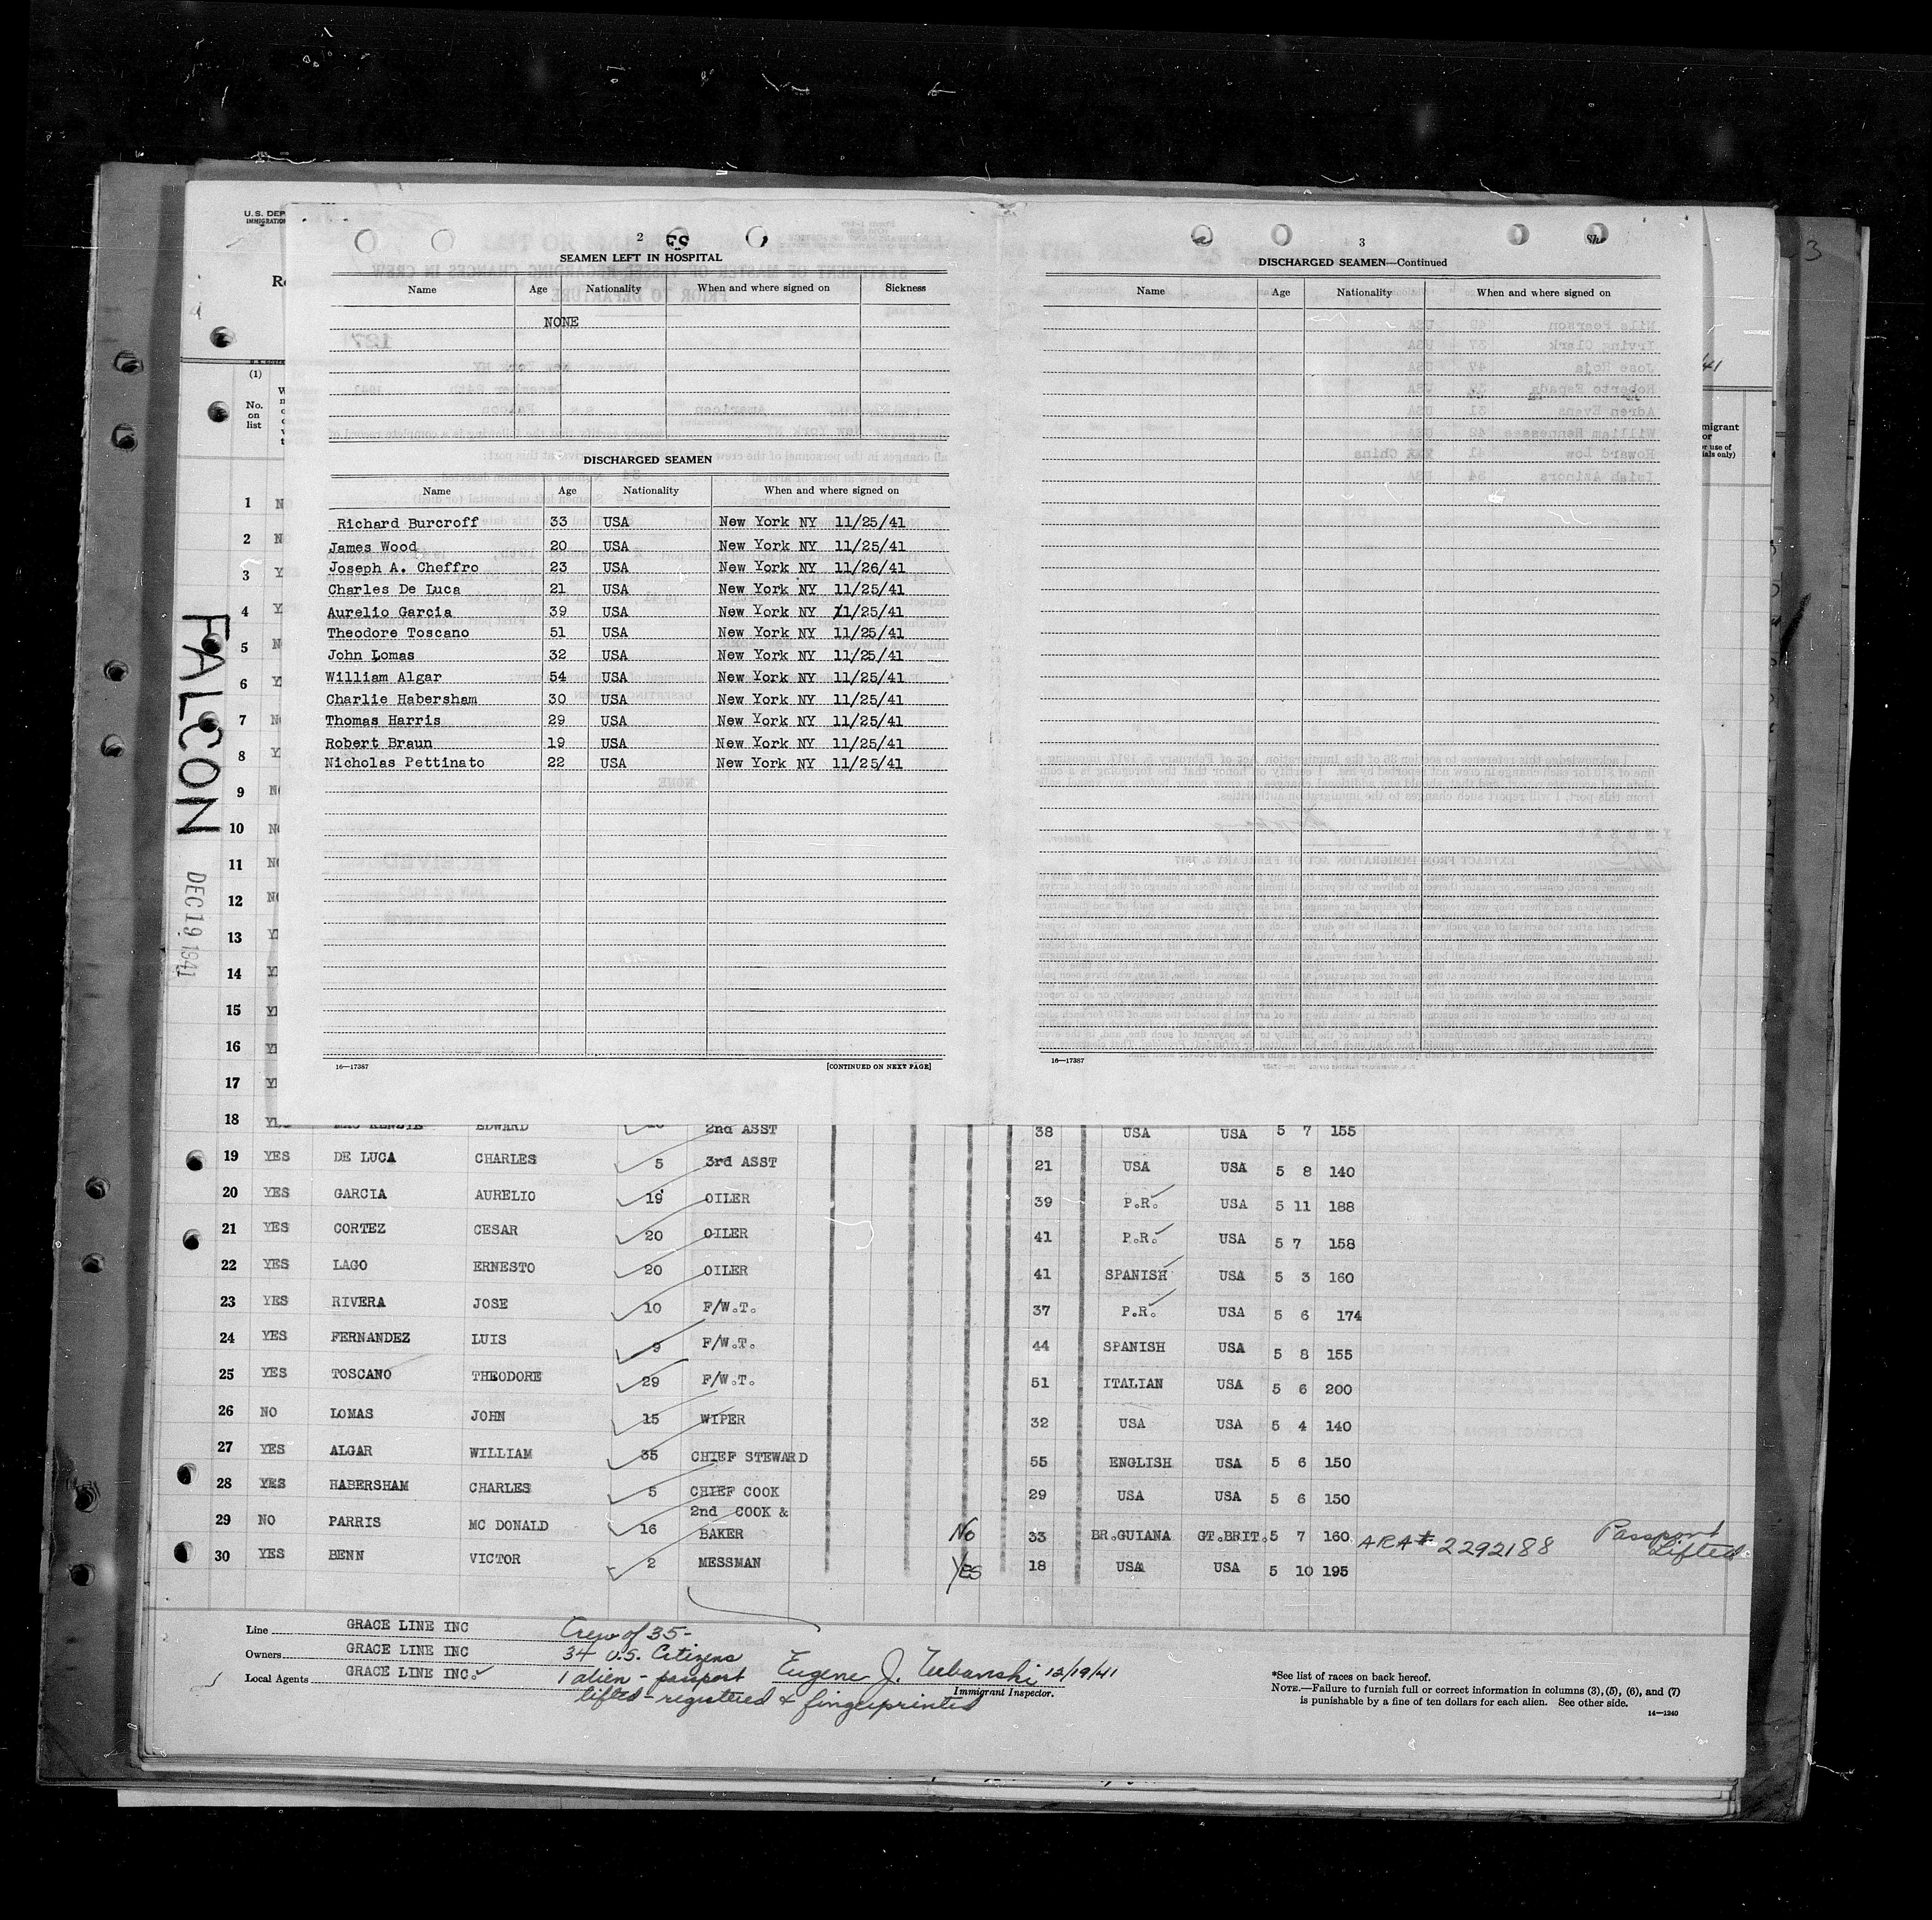 U.S. DEP
IMMIGRATION
2
SEAMEN LEFT IN HOSPITAL
Name Age Nationality When and where signed on Sickness
NONE
DISCHARGED SEAMEN
Name Age Nationality When and where signed on
Richard Burcroff 33 USA New York NY 11/25/41
James Wood 20 USA New York NY 11/25/41
Joseph A. Cheffro 23 USA New York NY 11/26/41
Charles De Luca 21 USA New York NY 11/25/41
Aurelio Garcia 39 USA New York NY 11/25/41
Theodore Toscano 51 USA New York NY 11/25/41
John Lomas 32 USA New York NY 11/25/41
William Algar 54 USA New York NY 11/25/41
Charlie Habersham 30 USA New York NY 11/25/41
Thomas Harris 29 USA New York NY 11/25/41
Robert Braun 19 USA New York NY 11/25/41
Nicholas Pettinato 22 USA New York NY 11/25/41
16—17387 [CONTINUED ON NEXT PAGE]
3
DISCHARGED SEAMEN—Continued
Name Age Nationality When and where signed on
16—17387
3
(1)
No.
on
list
1
2
3
4
5
6
7
8
9
10
11
12
13
14
15
16
17
FALCON
DEC 19 1941
18 MAC KENZIE EDWARD 2nd ASST 38 USA USA 5 7 155
19 YES DE LUCA CHARLES 5 3rd ASST 21 USA USA 5 8 140
20 YES GARCIA AURELIO 19 OILER 39 P.R. USA 5 11 188
21 YES CORTEZ CESAR 20 OILER 41 P.R. USA 5 7 158
22 YES LAGO ERNESTO 20 OILER 41 SPANISH USA 5 3 160
23 YES RIVERA JOSE 10 F/W.T. 37 P.R. USA 5 6 174
24 YES FERNANDEZ LUIS 9 F/W.T. 44 SPANISH USA 5 8 155
25 YES TOSCANO THEODORE 29 F/W.T. 51 ITALIAN USA 5 6 200
26 NO LOMAS JOHN 15 WIPER 32 USA USA 5 4 140
27 YES ALGAR WILLIAM 35 CHIEF STEWARD 55 ENGLISH USA 5 6 150
28 YES HABERSHAM CHARLES 5 CHIEF COOK 29 USA USA 5 6 150
29 NO PARRIS MC DONALD 16 2nd COOK & BAKER No 33 BR.GUIANA GT.BRIT. 5 7 160 ARA# 2292188 Passport Lifted
30 YES BENN VICTOR 2 MESSMAN YES 18 USA USA 5 10 195
Line GRACE LINE INC
Owners GRACE LINE INC
Local Agents GRACE LINE INC.
Crew of 35-
34 U.S. Citizens
1 alien - passport
lifted - registered & fingerprinted
Eugene J. 12/19/41
Immigrant Inspector.
*See list of races on back hereof.
NOTE.—Failure to furnish full or correct information in columns (3), (5), (6), and (7)
is punishable by a fine of ten dollars for each alien. See other side.
14—1240